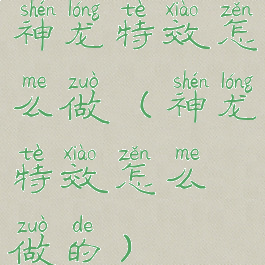 shén lóng tè xiào zěn
神龙特效怎
me zuò shén lóng
么做（神龙
tè xiào zěn me
特效怎么
zuò de
做的）